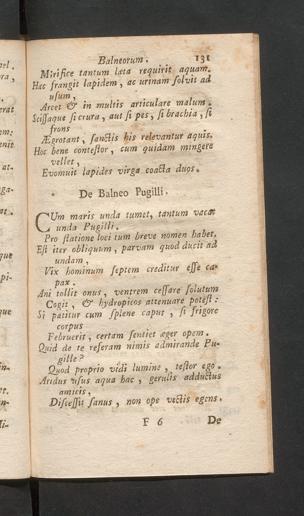 Balneorum. 131
Mirifice tantum læta requirit aquam.
Hac frangit lapidem, ac urinam solvit ad
usum,
Arcet & in multis articulare malum.
Scissaque si crura, aut si pes, si brachia, si
frons
Ægrotant, sanctis his relevantur aquis.
Hoc bene contestor, cum quidam mingere
vellet,
Evomuit lapides virga coacta duos.
De Balneo Pugilli.
CUm maris unda tumet, tantum vacat
unda Pugilli.
Pro statione loci tum breve nomen habet,
Est iter obliquum, parvam quod ducit ad
undam,
Vix hominum septem creditur esse ca-
pax.
Ani tollit onus, ventrem cessare solutum
Cogit, & hydropicos attenuare potest:
Si patitur cum splene caput, si frigore
corpus
Februeit, certam sentiet æger opem.
Quid de te referam nimis admirande Pu-
gille?
Quod proprio vidi lumine, testor ego.
Aridus usus aqua hac, gerulis adductus
amicis,
Discessit sanus, non ope vectis egens.
F 6 De